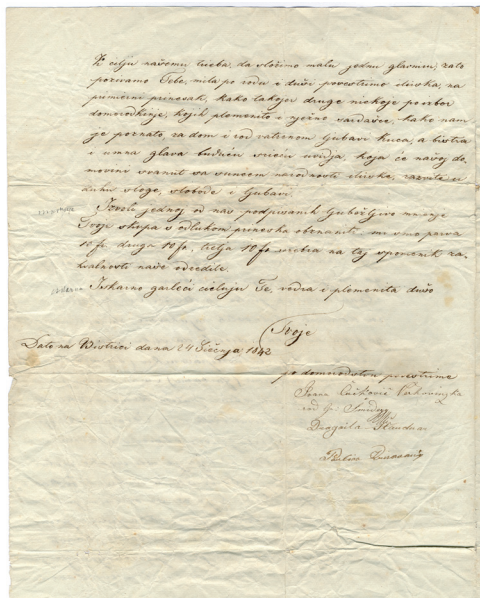 K cilju našemu treba, da složimo malu jednu glavnicu; zato
pozivamo Tebe, mila po rodu i duši posestrimo ilirska, na
primerni prinesak, kako takojer druge niekoje poizbor
domorodkinje, kojih plemenito i nježno sardašce, kako nam
je poznato za dom i rod vatrenom ljubavi kuca, a bistra
i umna glava buduću sreću uvidja, koja će našoj do-
movini svanuti sa suncem narodnosti ilirske, razvite u
duhu sloge, slobode i ljubavi.
Izvoli jednoj od nas podpisanih ljubežljivo mnenje
Tvoje skupa s odlukom prineska obznaniti. mi smo parva
10 fr. druga 10 fr., tretja 10 fr. srebra na taj spomenik za-
hvalnosti naše odredile.
Iskreno garleći cieluju Te, rodna i plemenita dušo
Tvoje
Dato na Bistrici dana 24 Siečnja 1842
po domorodstvu posestrime
Dragoila